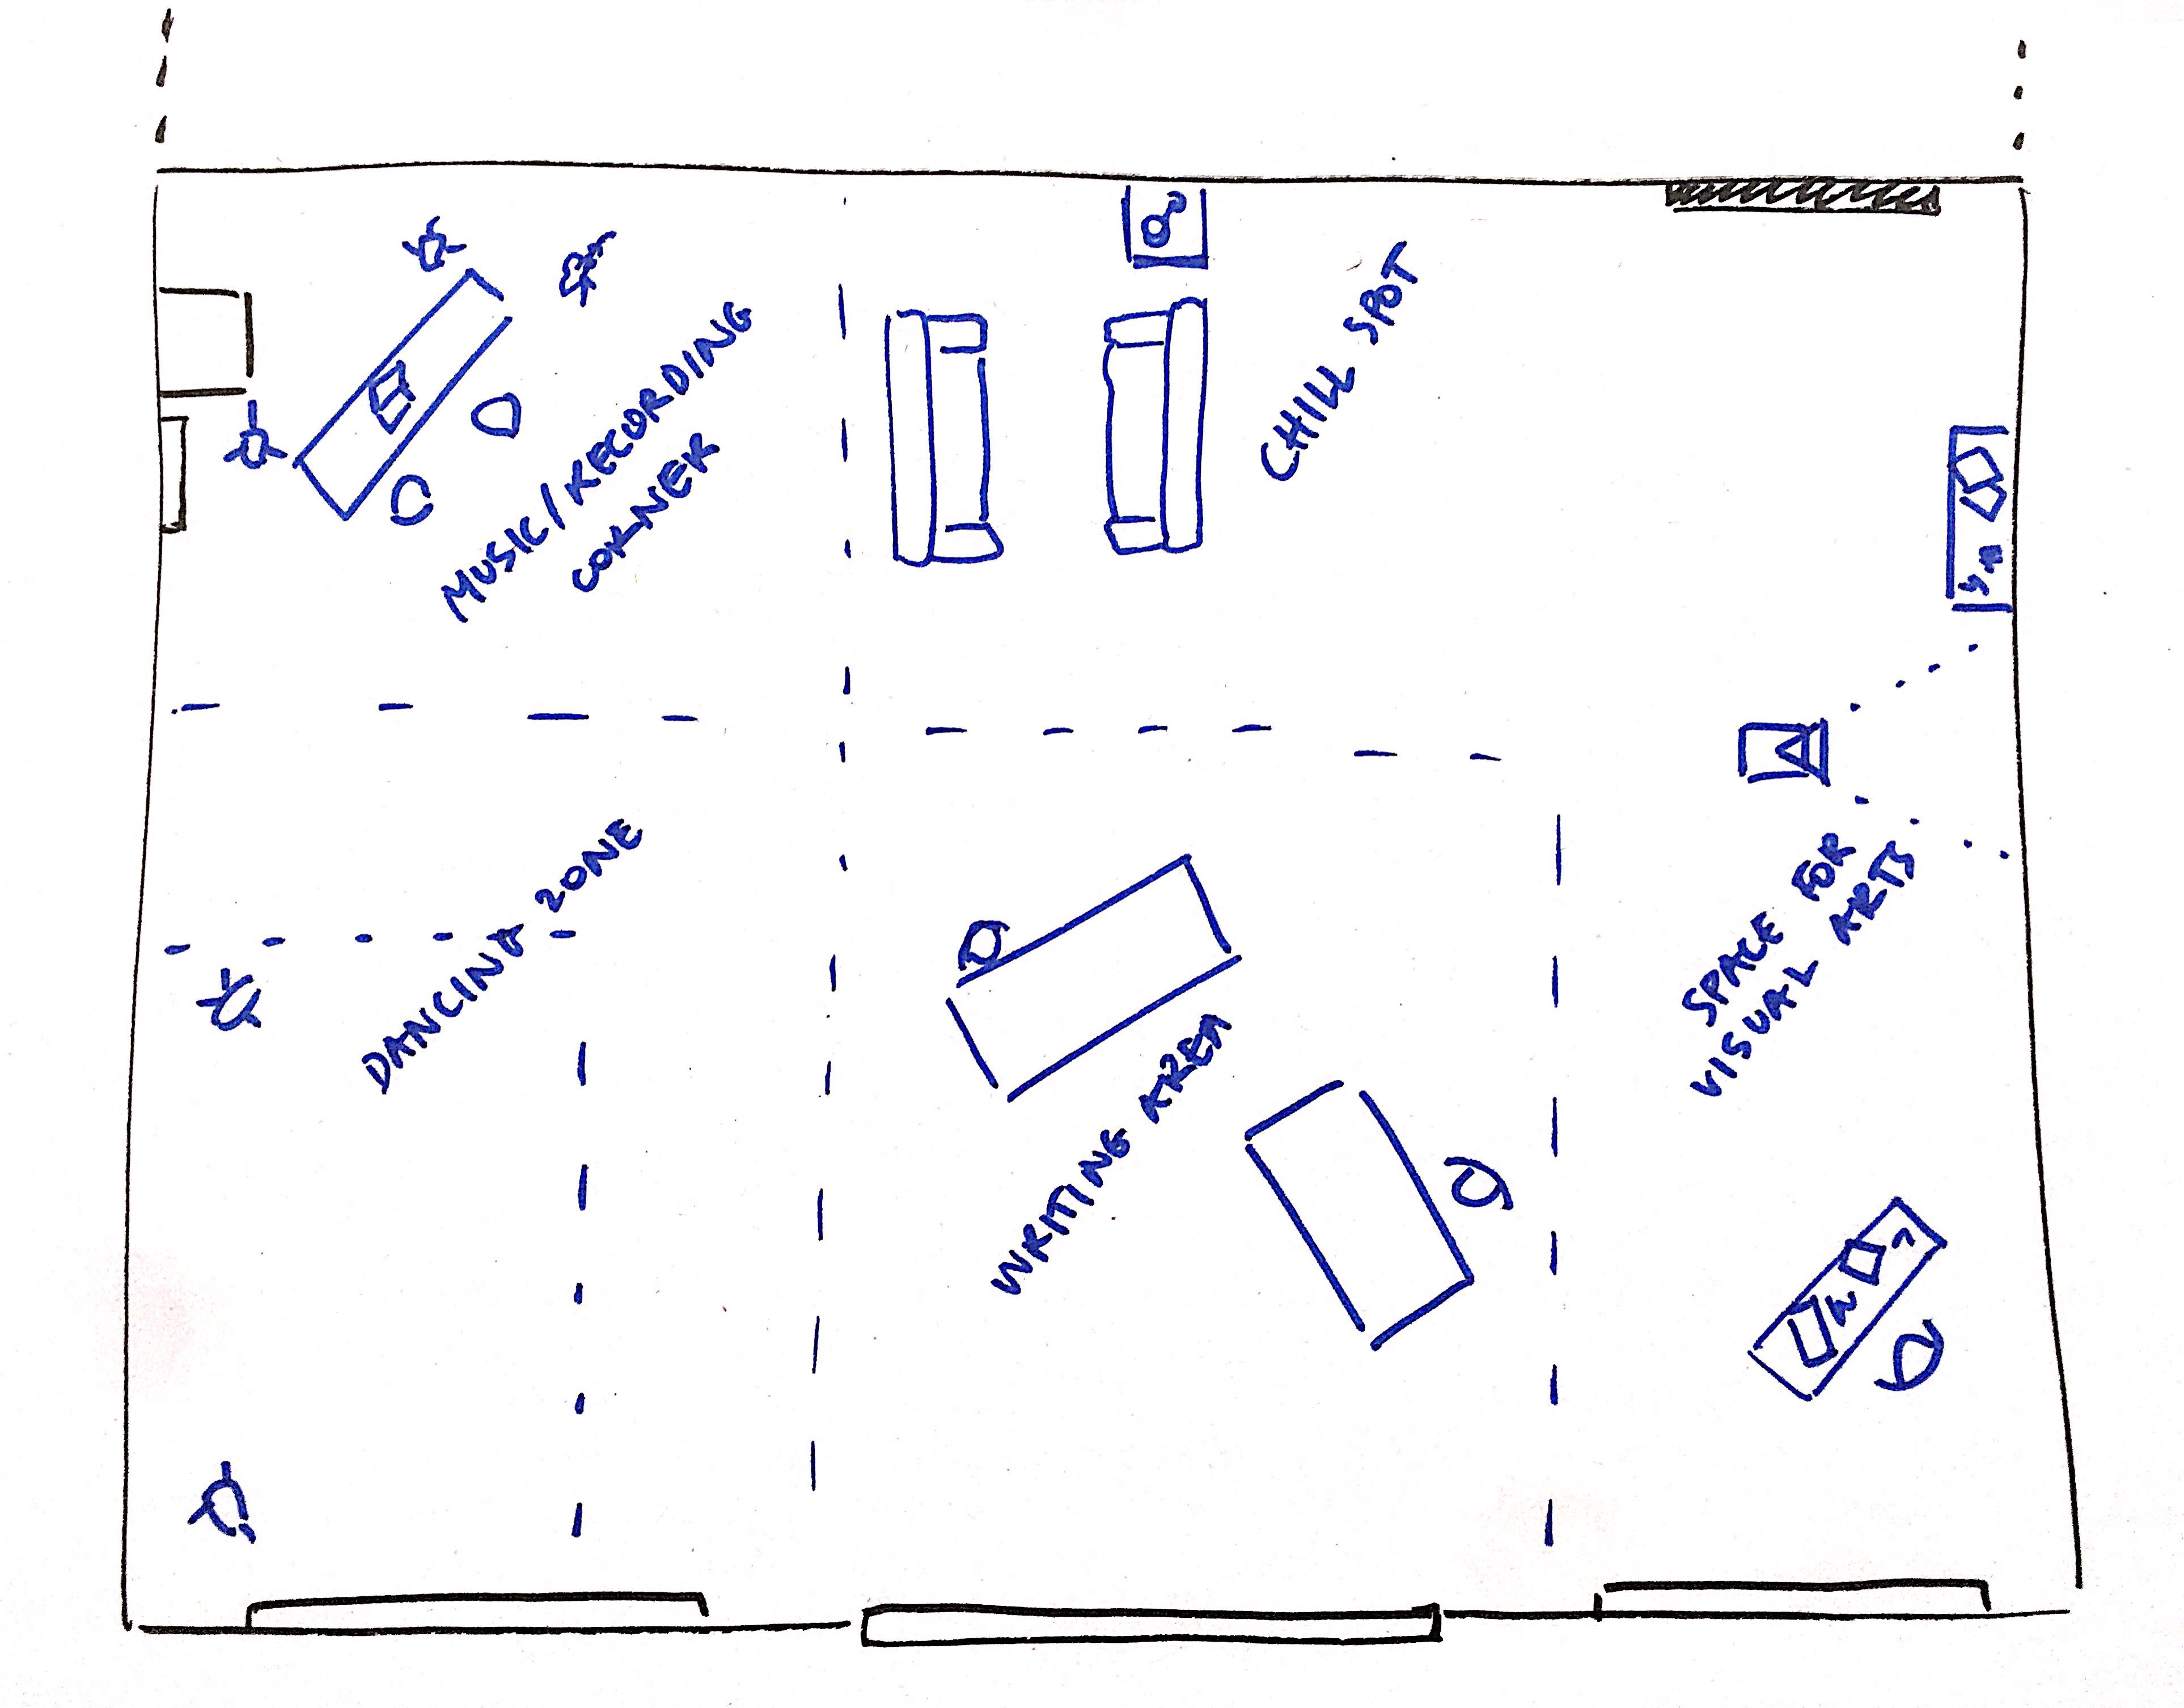 MUSIC/RECORDING
CORNER
CHILL SPOT
DANCING ZONE
WRITING AREA
SPACE FOR
VISUAL ARTS